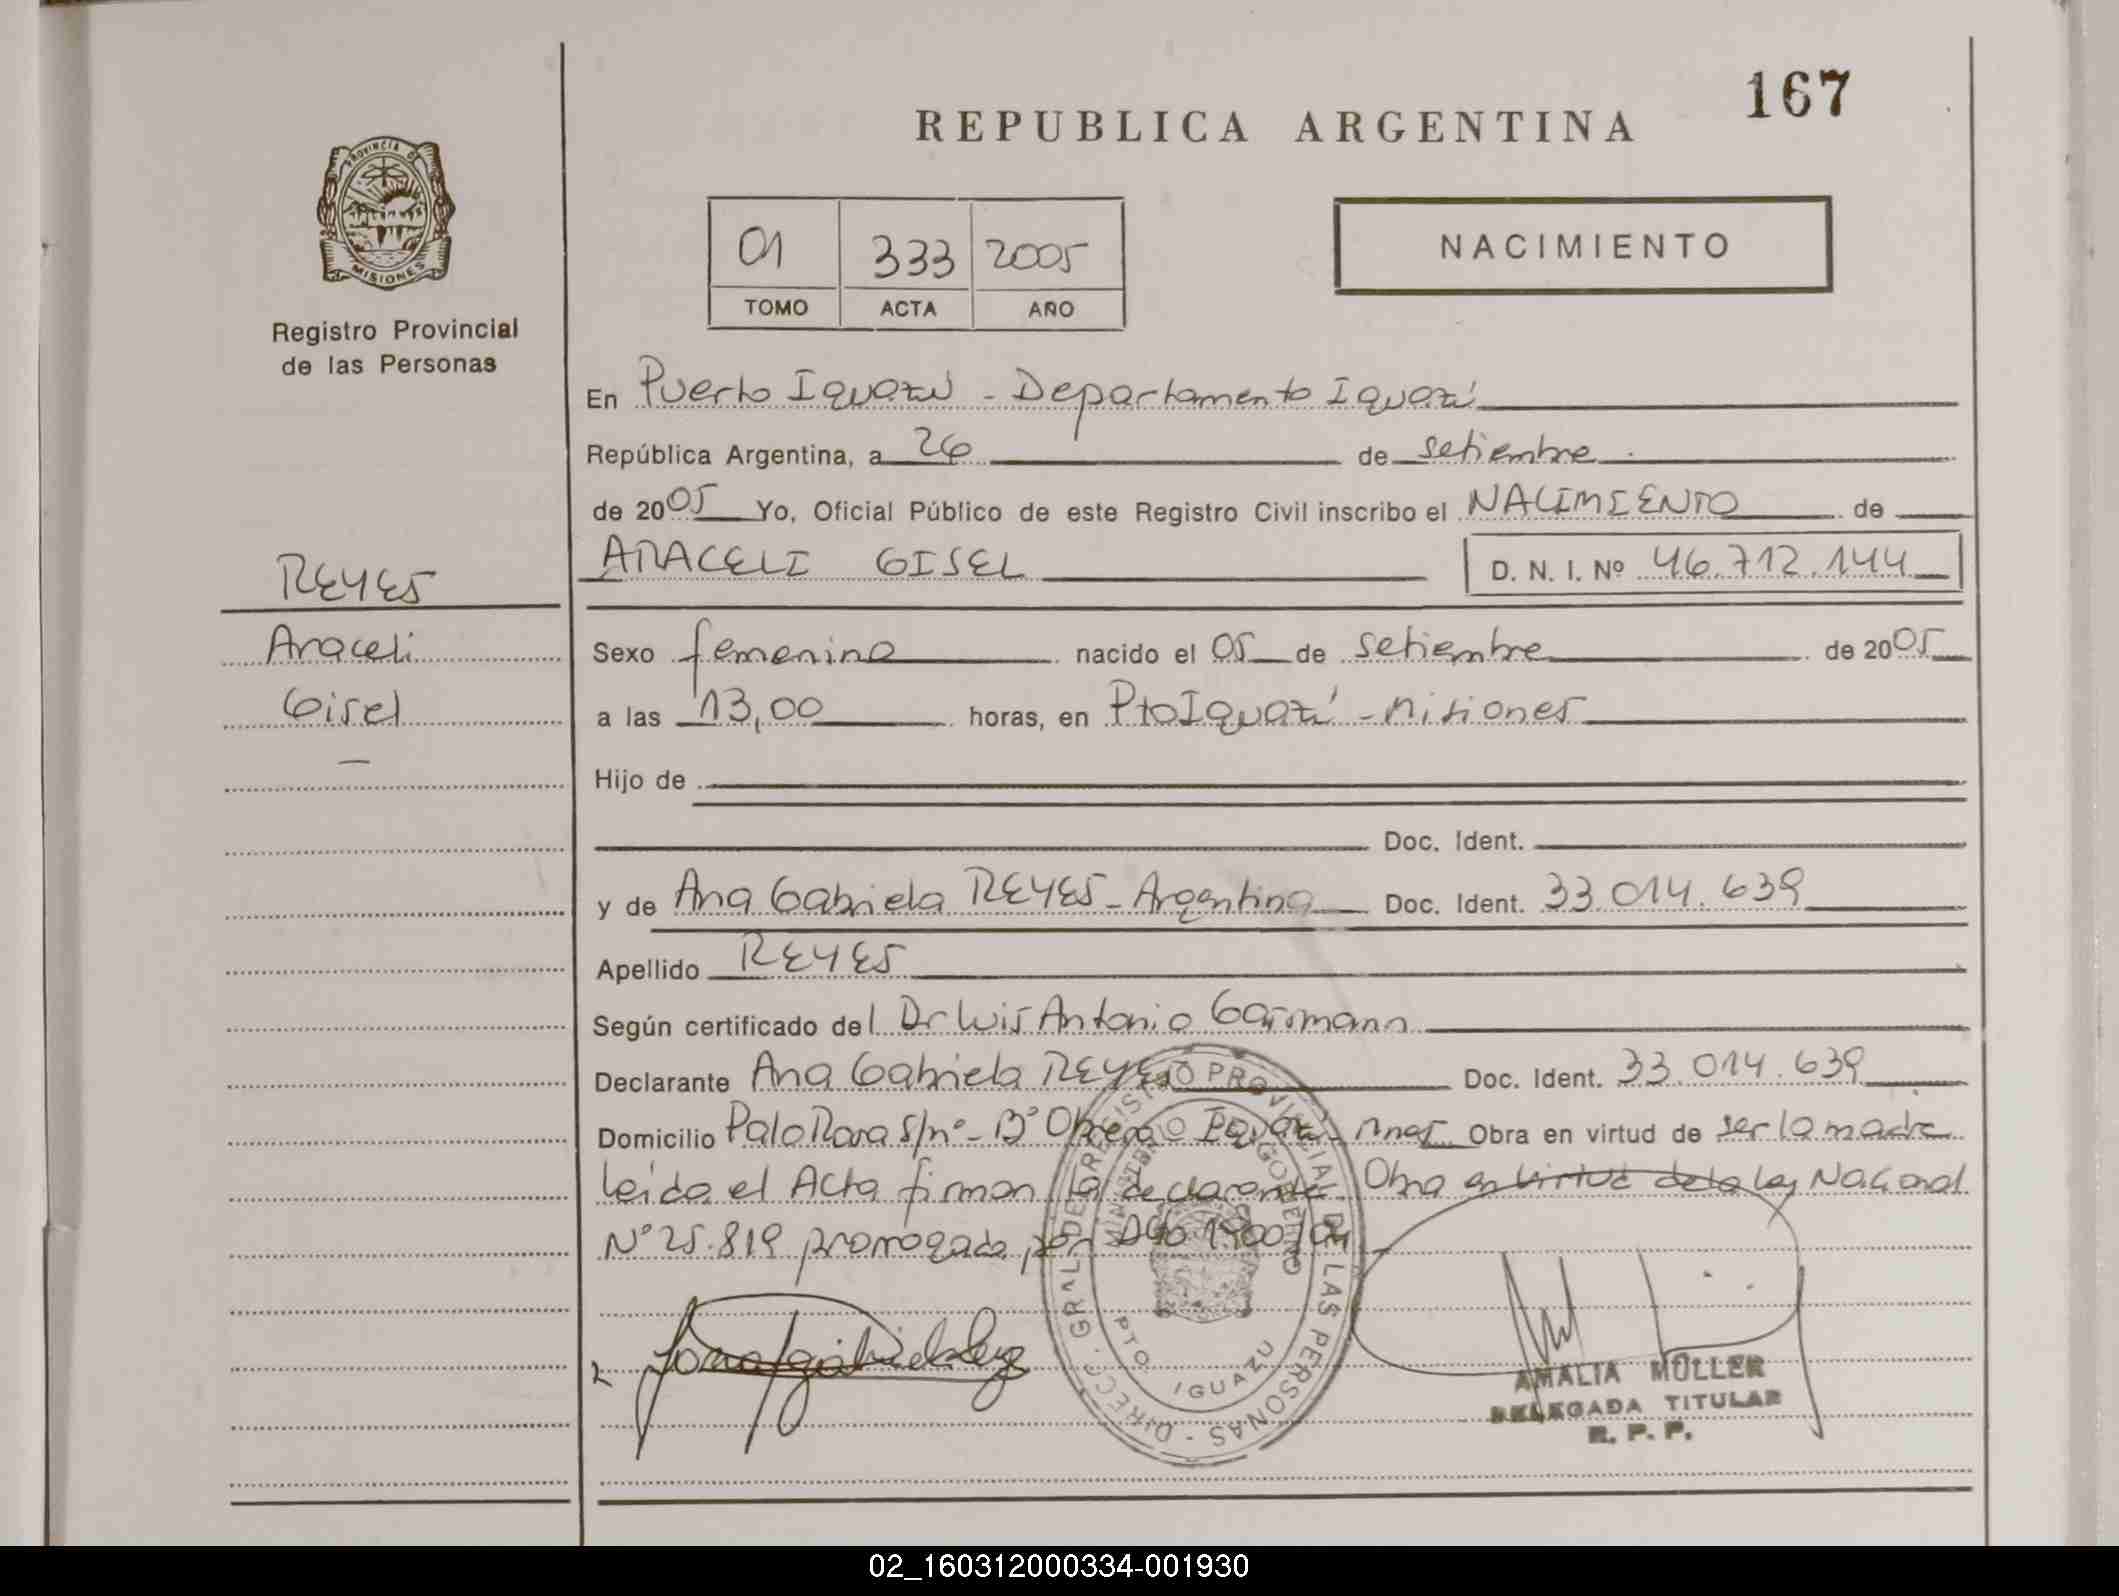 167
REPUBLICA ARGENTINA
PROVINCIA DE
MISIONES
Registro Provincial
de las Personas
01 333 2005
TOMO ACTA AÑO
NACIMIENTO
En Puerto Iguazú - Departamento Iguazú
República Argentina, a 26 de setiembre
de 2005 Yo, Oficial Público de este Registro Civil inscribo el NACIMIENTO de
ARACELI GISEL D. N. I. Nº 46.712.144
REYES
Araceli
Gisel
Sexo femenino nacido el 05 de setiembre de 2005
a las 13,00 horas, en Pto Iguazú - Misiones
Hijo de
Doc. Ident.
y de Ana Gabriela REYES - Argentina Doc. Ident. 33.014.639
Apellido REYES
Según certificado del Dr Luis Antonio
Declarante Ana Gabriela REYES Doc. Ident. 33.014.639
Domicilio Palo Rosa s/nº - Bº Obrero Iguazú - Mnes Obra en virtud de ser la madre
leída el Acta firman la declarante. Obra en virtud de la Ley Nacional
Nº 25.819 prorrogada por Dto 1900/04
DIRECC. GRAL. DE REGISTRO PROVINCIAL DE LAS PERSONAS
MINISTERIO DE GOBIERNO
PTO. IGUAZU
AMALIA MÜLLER
DELEGADA TITULAR
R. P. P.
02_160312000334-001930